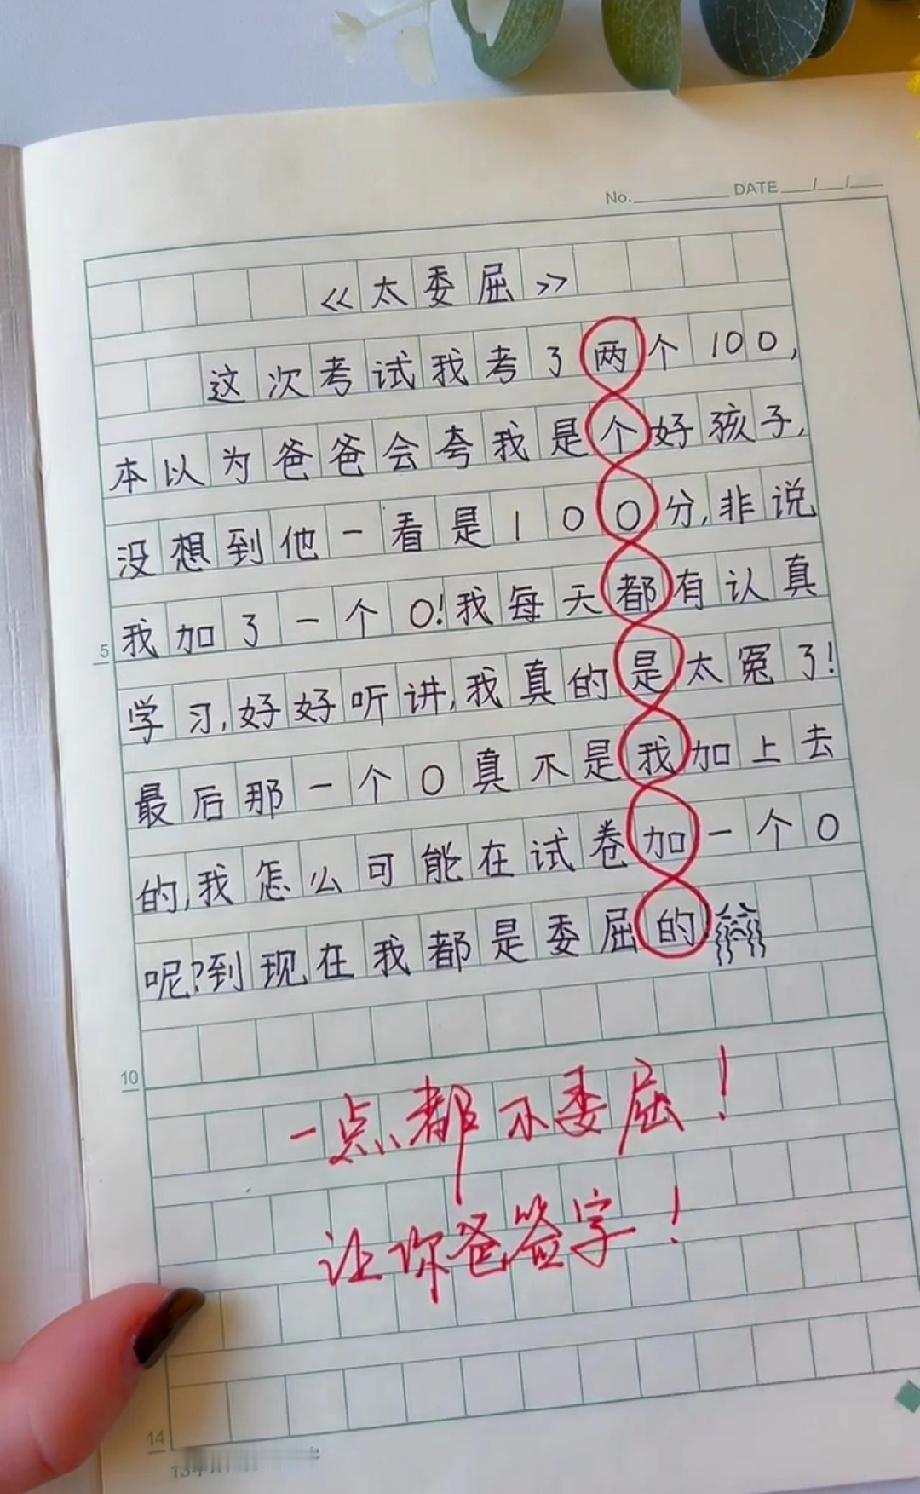 No. DATE / /
《太委屈》
这次考试我考了两个100,
本以为爸爸会夸我是个好孩子,
没想到他一看是100分,非说
我加了一个0!我每天都有认真
5
学习,好好听讲,我真的是太冤了!
最后那一个0真不是我加上去
的,我怎么可能在试卷加一个0
呢?到现在我都是委屈的
10
一点都不委屈!
让你爸签字!
14